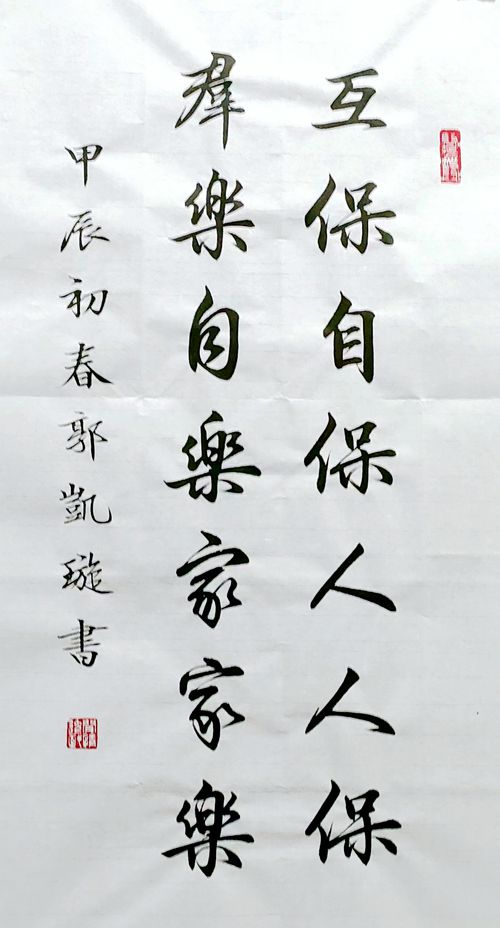 互保自保人人保
羣樂自樂家家樂
甲辰初春郭凱璇書